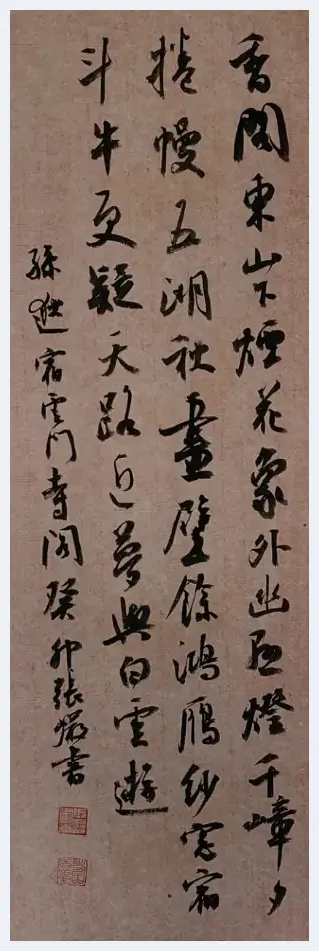 香閣東山下煙花象外幽懸燈千嶂夕
捲幔五湖秋畫壁餘鴻鴈紗窗宿
斗牛更疑天路近夢與白雲遊
孫逖宿雲門寺閣癸卯張書